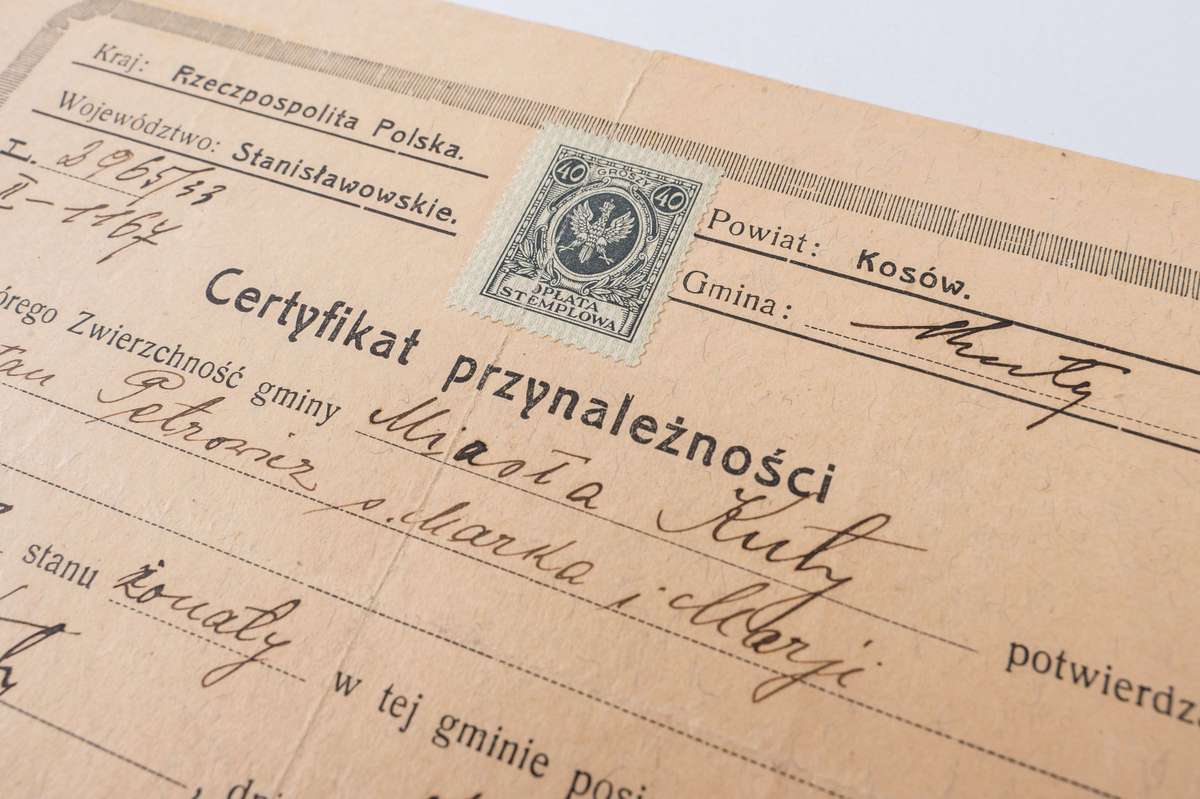 Kraj: Rzeczpospolita Polska.
Województwo: Stanisławowskie.
L. 3965/33
II - 1167
40 GROSZY 40
OPŁATA
STEMPLOWA
Powiat: Kosów.
Gmina: Kuty
Certyfikat przynależności
órego Zwierzchność gminy Miasta Kuty potwierdz
Petrowicz s. Marka i Marji
stanu żonaty w tej gminie posi